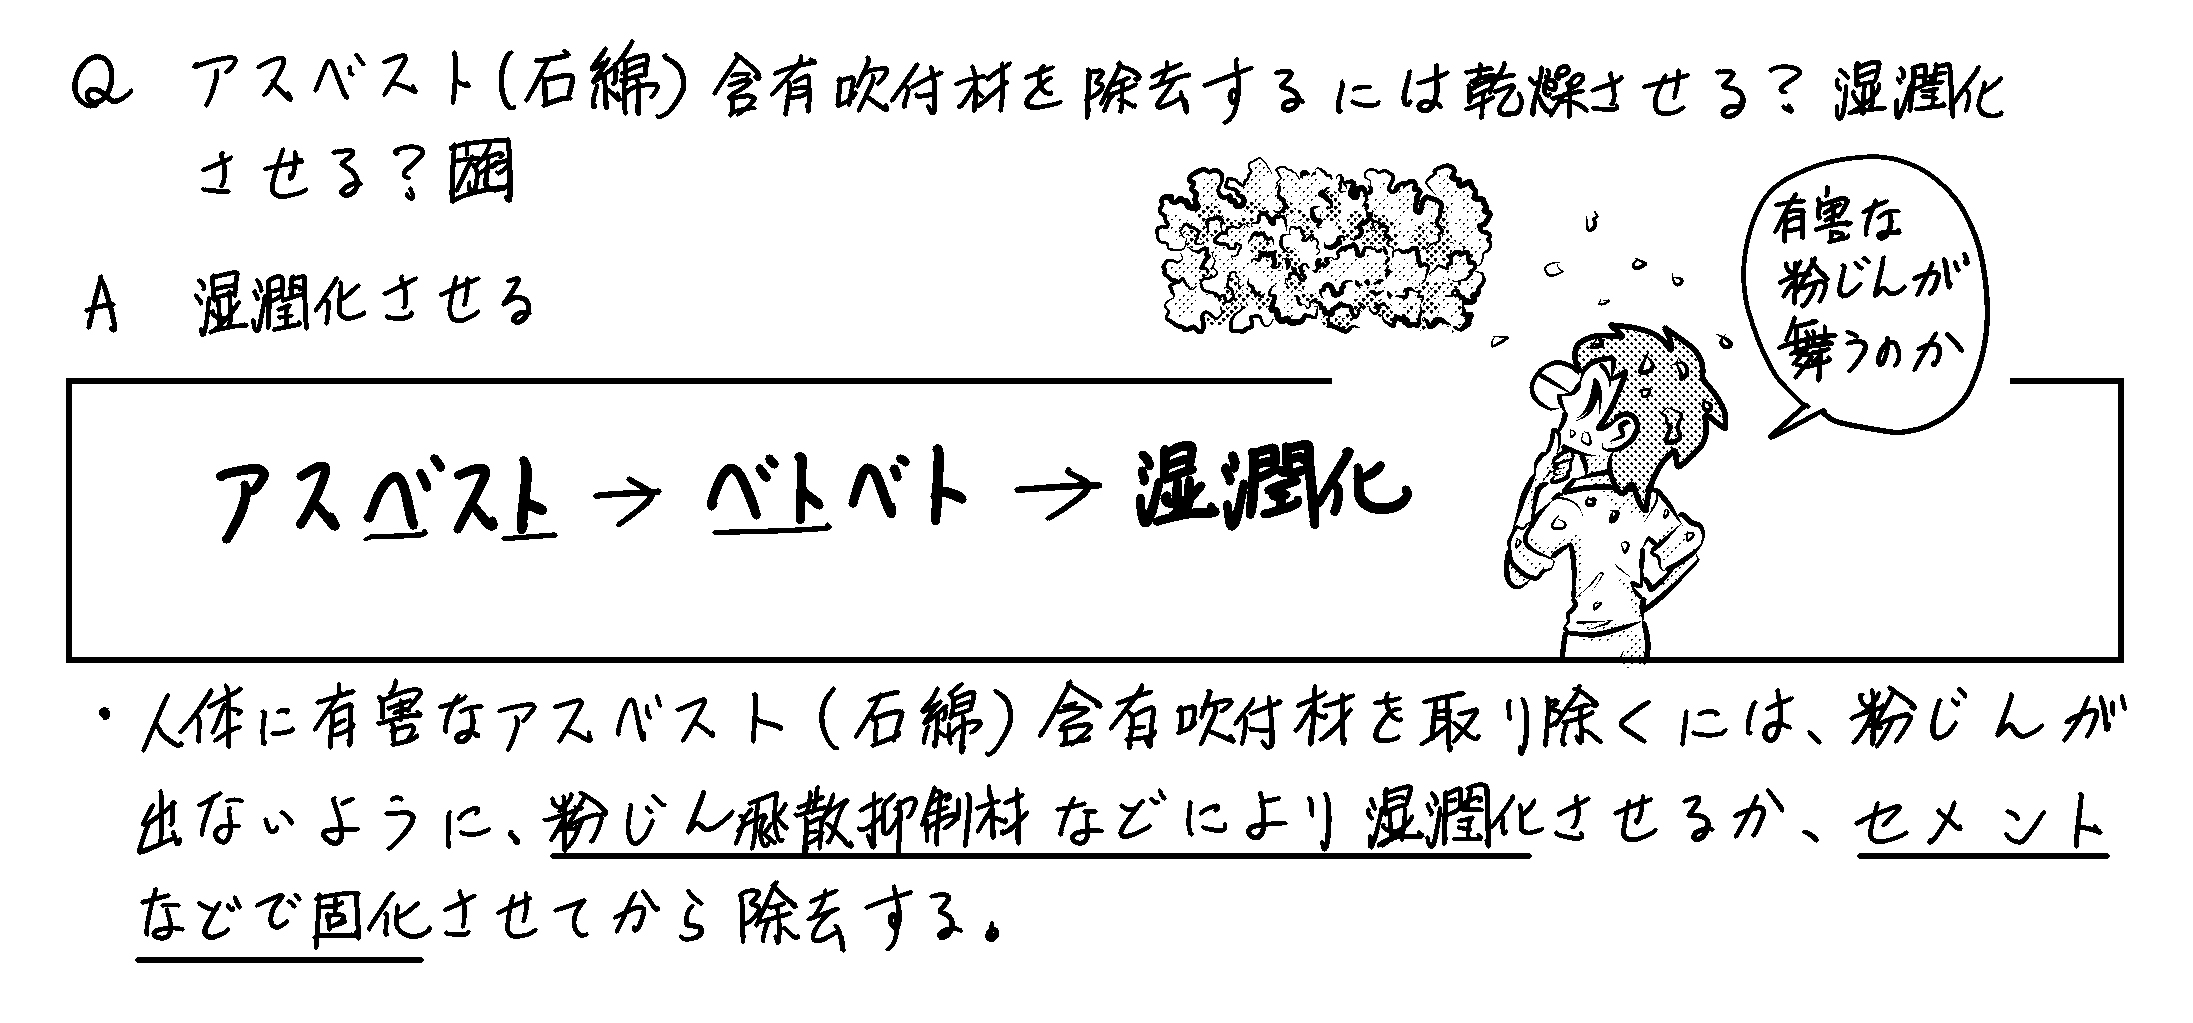 Q アスベスト(石綿)含有吹付材を除去するには乾燥させる?湿潤化
させる?
A 湿潤化させる
有害な
粉じんが
舞うのか
アスベスト→ベトベト→湿潤化
・人体に有害なアスベスト(石綿)含有吹付材を取り除くには、粉じんが
出ないように、粉じん飛散抑制材などにより湿潤化させるか、セメント
などで固化させてから除去する。